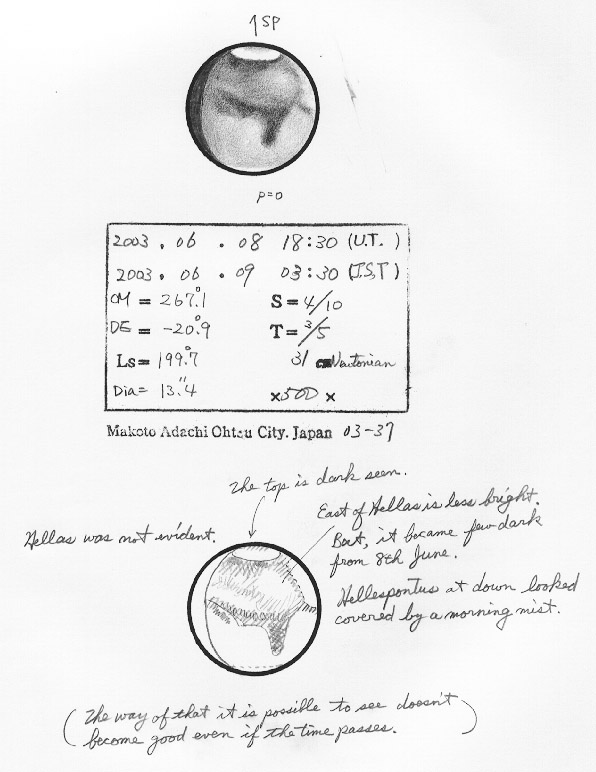 ↑SP
P=0
2003. 06 . 08 18:30 (U.T. )
2003. 06 . 09 03:30 (J.S.T)
CM = 267.°1 S = 4/10
DE = -20.°9 T = 3/5
Ls= 199.°7 31 cm Newtonian
Dia= 13.″4 ×500 ×
Makoto Adachi Ohtsu City. Japan 03-37
The top is dark seen.
East of Hellas is less bright.
But, it became few dark
from 8th June.
Hellas was not evident.
Hellespontus at down looked
covered by a morning mist.
(The way of that it is possible to see doesn't
become good even if the time passes.)